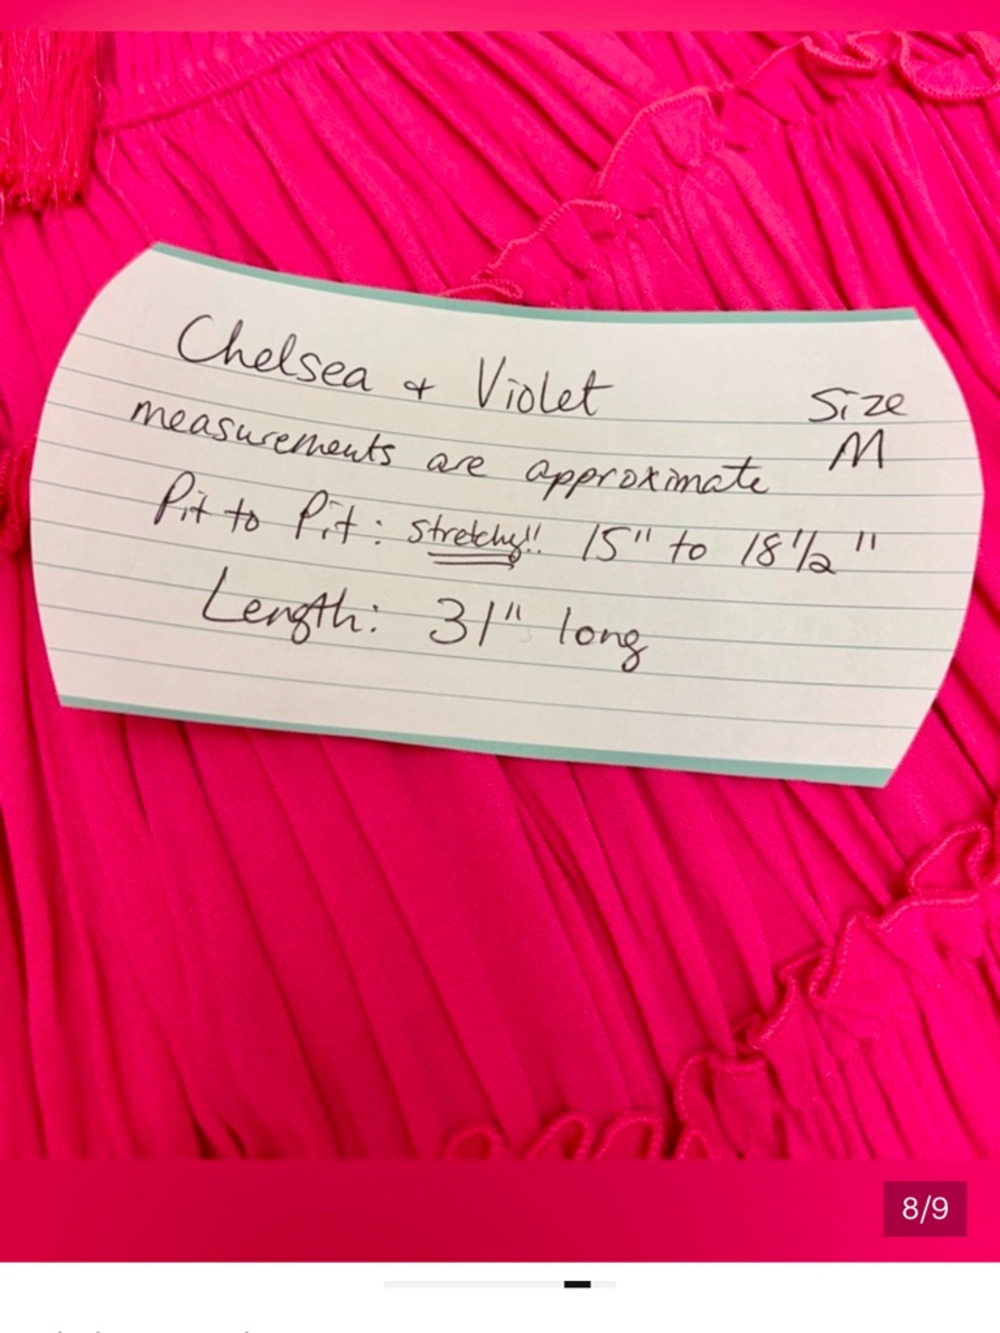 Chelsea + Violet
Size
M
measurements are approximate
Pit to Pit: stretchy!! 15" to 18 1/2"
Length: 31" long
8/9